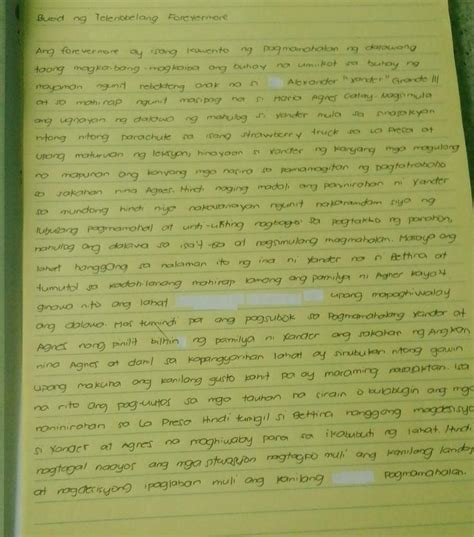 Buod ng Telenobelang Forevermore
Ang forevermore ay isang kuwento ng pagmamahalan ng dalawang
taong magkaibang-magkaiba ang buhay na umiikot sa buhay ng
mayaman ngunit rebeldeng anak na si Alexander "xander" Grande III
at sa mahirap ngunit masipag na si Maria Agnes Calay. Nagsimula
ang ugnayan ng dalawa ng mahulog si Xander mula sa sinasakyan
nitong parachute sa isang strawberry truck sa La Presa at
upang maturuan ng leksyon, hinayaan si Xander ng kanyang mga magulang
na mapunan ang kanyang mga nasira sa pamamagitan ng pagtatrabaho
sa sakahan nina Agnes. Hindi naging madali ang paninirahan ni Xander
sa mundong hindi niya nakasanayan ngunit nakaramdam siya ng
lubulang pagmamahal at unti-unting nagbago sa pagtakbo ng panahon,
nahulog ang dalawa sa isa't-isa at nagsimulang magmahalan. Masaya ang
lahat hanggang sa nalaman ito ng ina ni Xander na si Bettina at
tumutol sa kadahilanang mahirap lamang ang pamilya ni Agnes kaya't
ginawa nito ang lahat upang mapaghiwalay
ang dalawa. Mas tumindi pa ang pagsubok sa pagmamahalang Xander at
Agnes nang pinilit bilhin ng pamilya ni Xander ang sakahan ng Angkan
nina Agnes at dahil sa kapangyarihan lahat ay sinubukan nitong gawin
upang makuha ang kanilang gusto kahit pa ay maraming masaktan. Isa
na rito ang pag-uutos sa mga tauhan na sirain o bulabugin ang mga
naninirahan sa La Presa. Hindi tumigil si Bettina hanggang magdesisyon
si Xander at Agnes na maghiwalay para sa ikabubuti ng lahat. Hindi
nagtagal naayos ang mga sitwasyon nagtagpo muli ang kanilang landas
at nagdesisyong ipaglaban muli ang kanilang pagmamahalan.